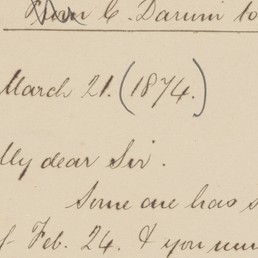 From C. Darwin to
March 21. (1874.)
My dear Sir.
Some one has s
f Feb. 24. & you mu